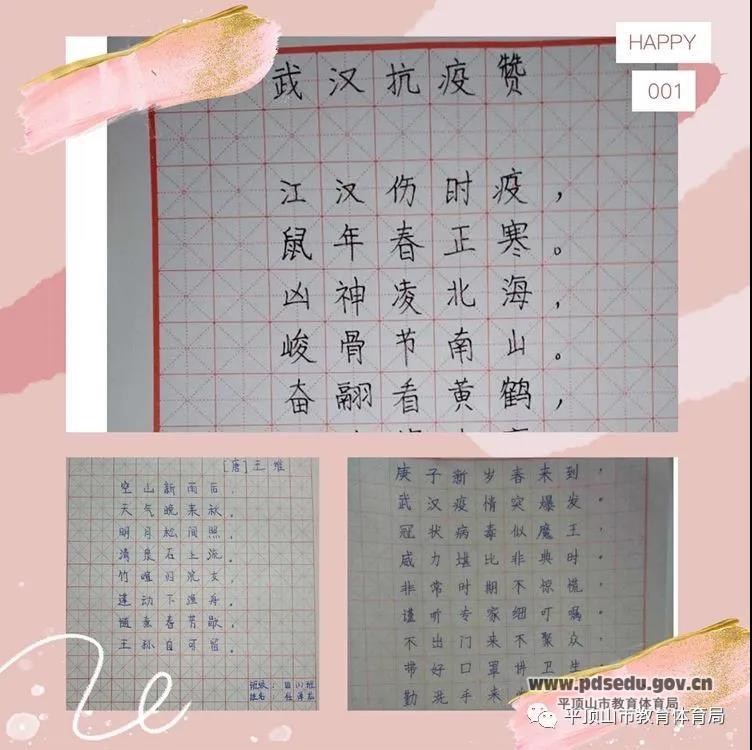 HAPPY
001
武汉抗疫赞
江汉伤时疫，
鼠年春正寒。
凶神凌北海，
峻骨节南山。
奋翮看黄鹤，
[唐]王维
空山新雨后，
天气晚来秋。
明月松间照，
清泉石上流。
竹喧归浣女，
莲动下渔舟。
随意春芳歇，
王孙自可留。
班级：
姓名
庚子新岁春来到，
武汉疫情突爆发。
冠状病毒似魔王，
威力堪比非典时。
非常时期不惊慌，
谨听专家细叮嘱。
不出门来不聚众，
带好口罩讲卫生
勤洗手来
www.pdsedu.gov.cn
平顶山市教育体育局
平顶山市教育体育局